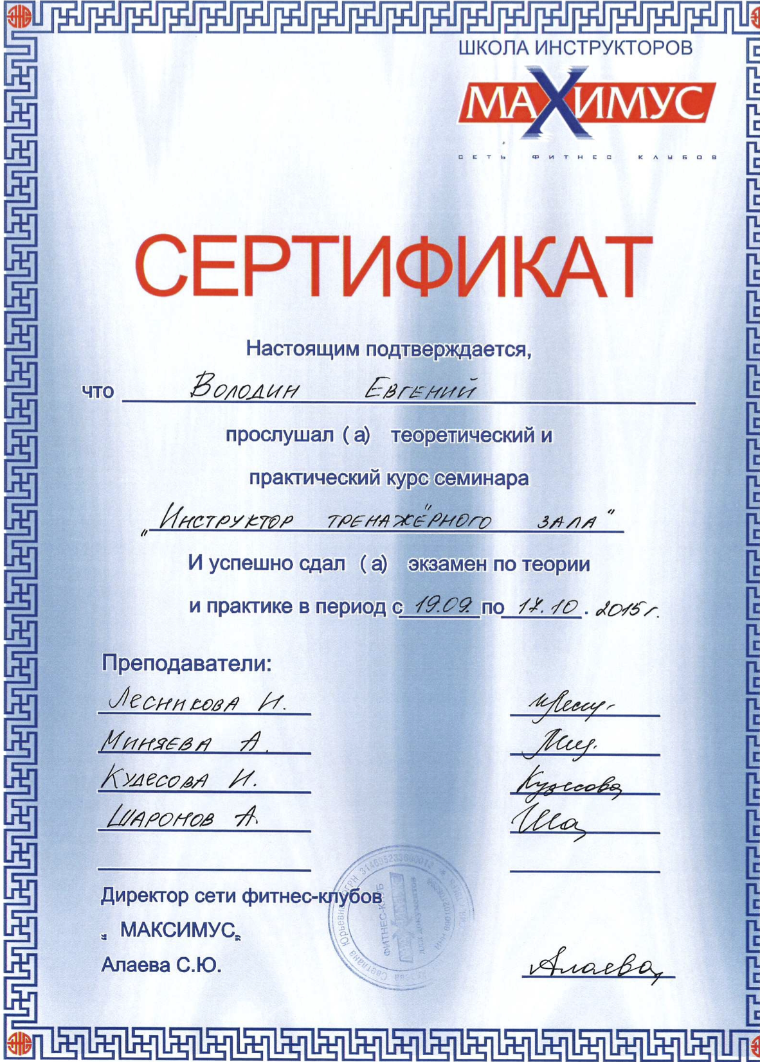 ШКОЛА ИНСТРУКТОРОВ
МАХИМУС
СЕТЬ ФИТНЕС КЛУБОВ
СЕРТИФИКАТ
Настоящим подтверждается,
что Володин Евгений
прослушал (а) теоретический и
практический курс семинара
„Инструктор тренажёрного зала"
И успешно сдал (а) экзамен по теории
и практике в период с 19.09. по 17.10. 2015г.
Преподаватели:
Лесникова И.
Миняева А.
Кудесова И. Кудесова
Шаронов А.
Директор сети фитнес-клубов
„ МАКСИМУС„
Алаева С.Ю. Алаева
ФИТНЕС-КЛУБ